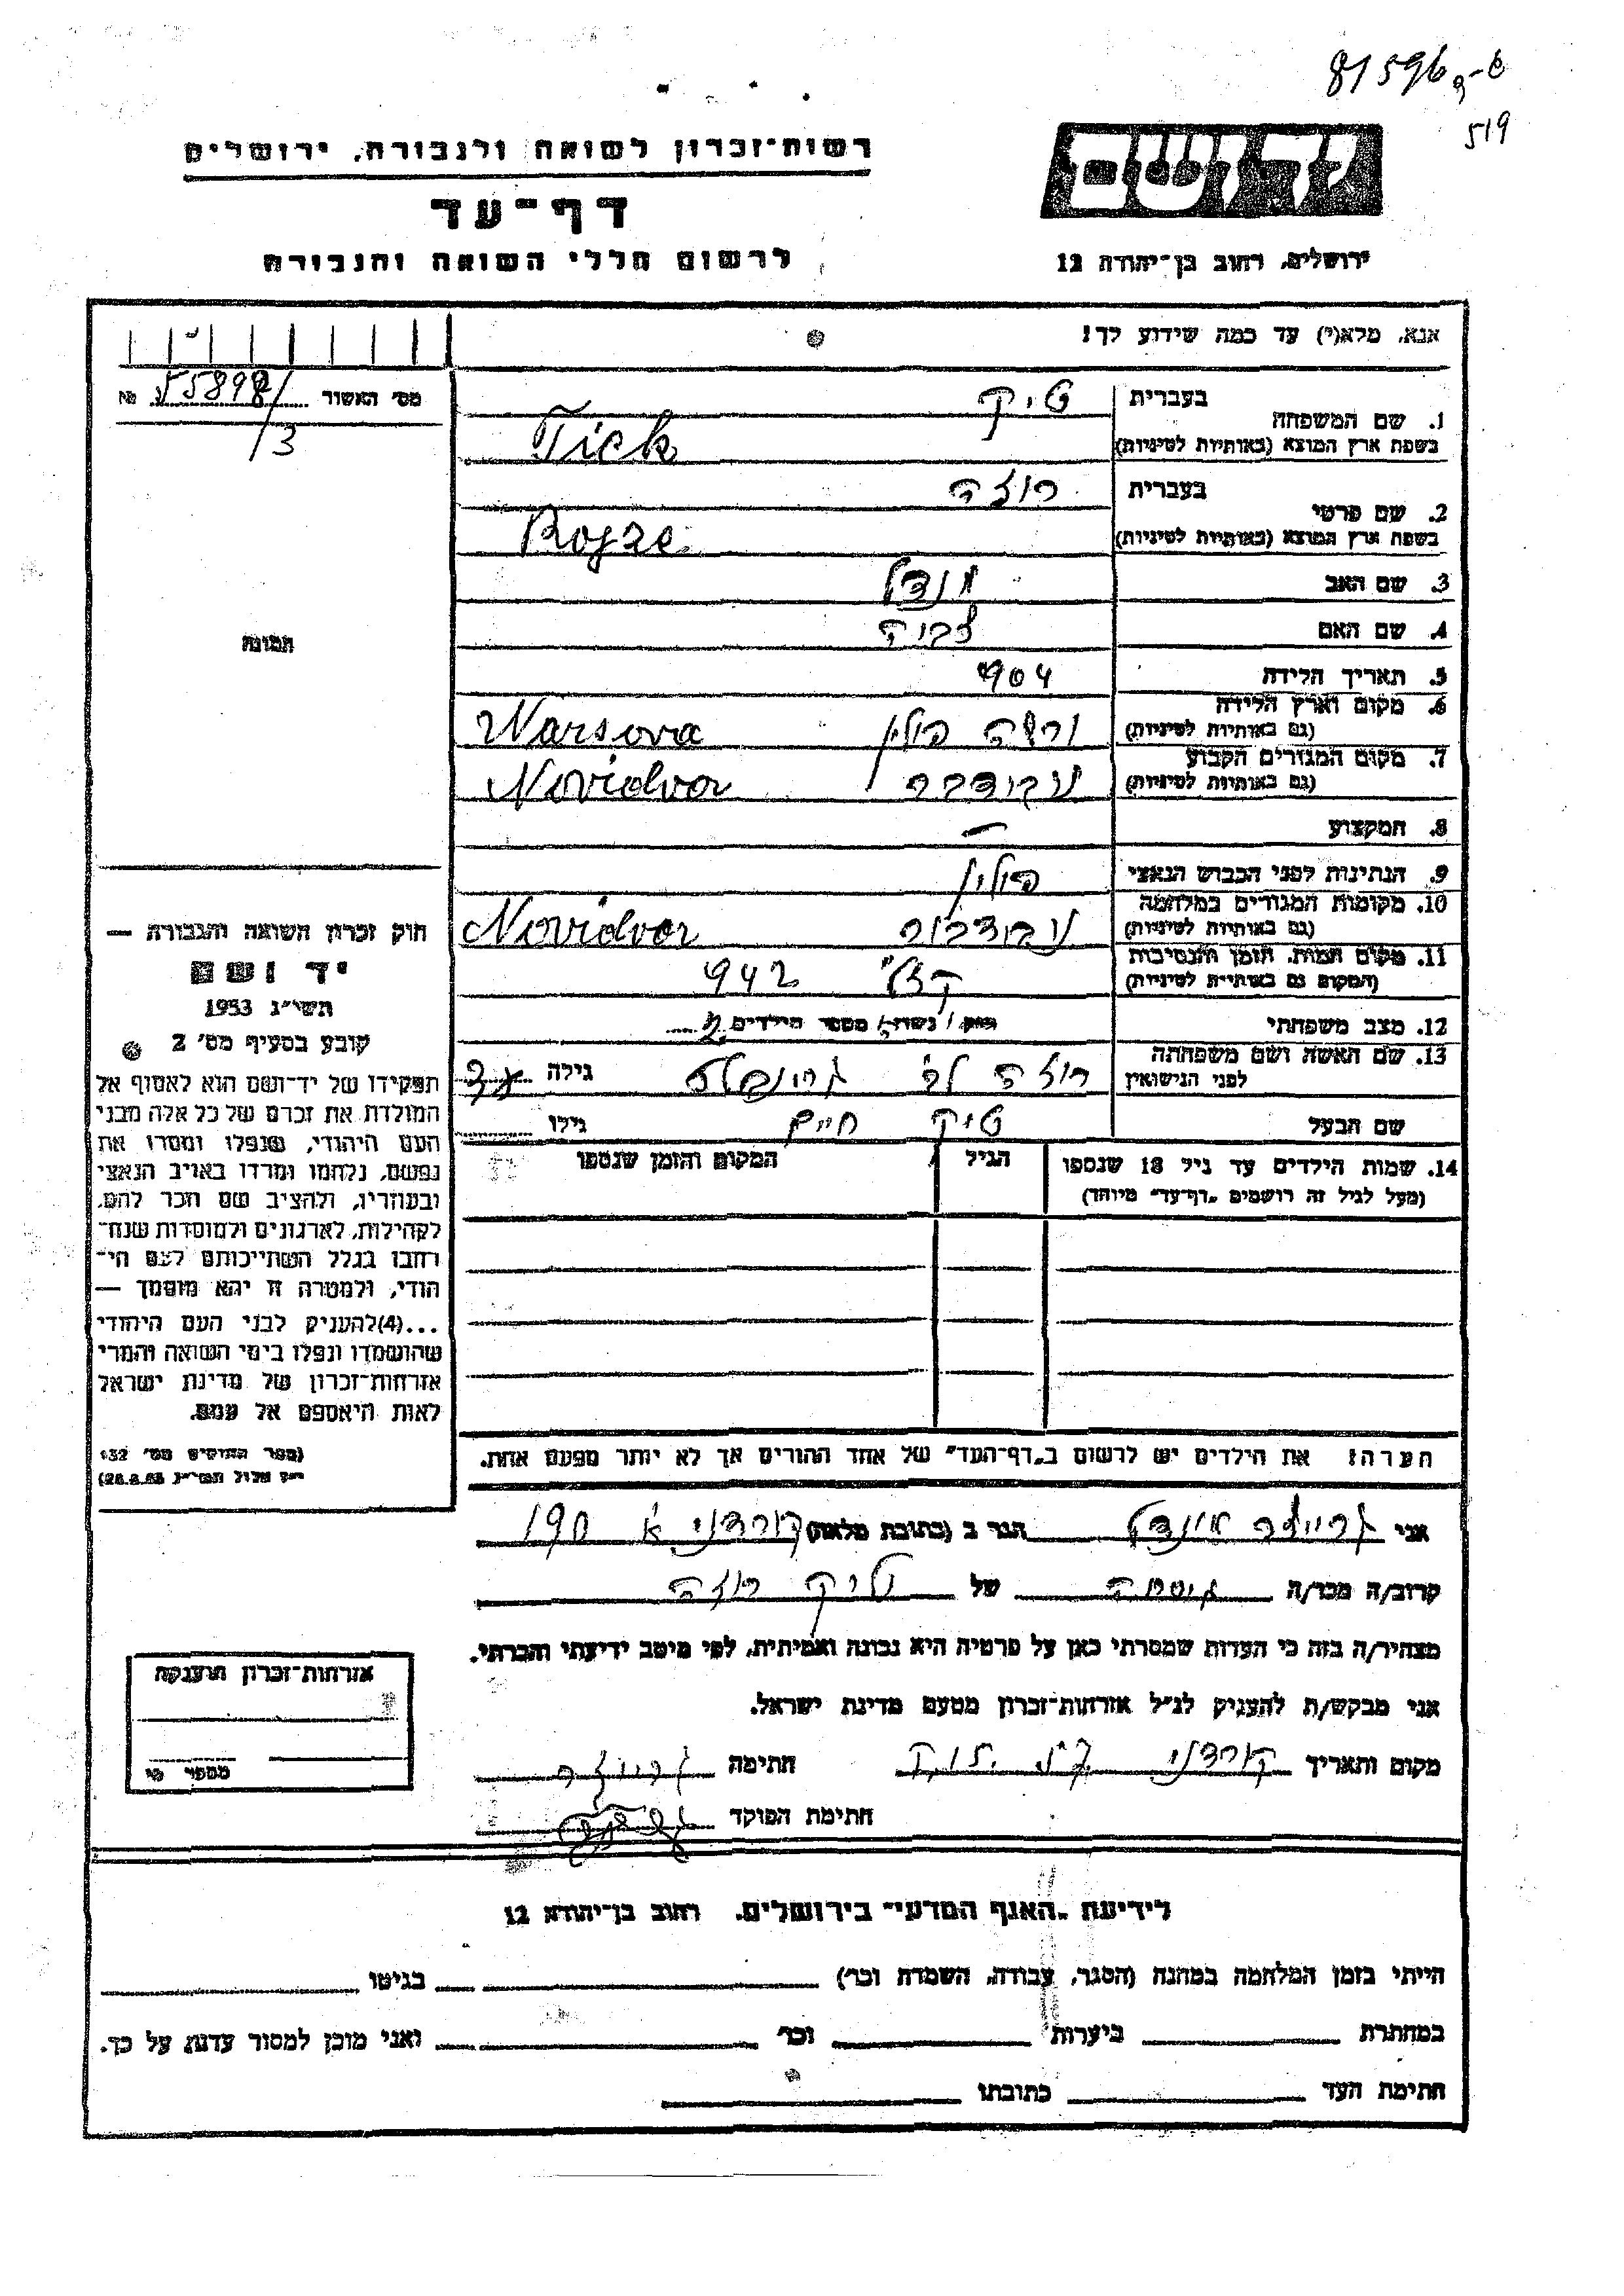 81596
519
רשות־זכרון לשואה ולגבורה, ירושלים
דף־עד
לרשום חללי השואה והגבורה
יד ושם
ירושלים, רחוב בן־יהודה 12
אנא, מלא(י) עד כמה שידוע לך!
מס׳ האשור 55898/ №
/3
בעברית טיק
1. שם המשפחה
בשפת ארץ המוצא (באותיות לטיניות) Tick
בעברית רוזה
2. שם פרטי
בשפת ארץ המוצא (באותיות לטיניות) Rojze
3. שם האב מנדל
4. שם האם
5. תאריך הלידה 904
6. מקום וארץ הלידה
(גם באותיות לטיניות) ורשה פולין Warsova
7. מקום המגורים הקבוע
(גם באותיות לטיניות) נובידבור Novidvor
8. המקצוע —
9. הנתינות לפני הכבוש הנאצי פולין
10. מקומות המגורים במלחמה
(גם באותיות לטיניות) נובידבור Novidvor
11. מקום המות, הזמן והנסיבות
(המקום גם באותיות לטיניות) 942
12. מצב משפחתי רוק / נשוי / מספר הילדים 2
13. שם האשה ושם משפחתה
לפני הנישואין רוזה לב׳ גרינבלט גילה
שם הבעל טיק חיים גילו
14. שמות הילדים עד גיל 18 שנספו
(מעל לגיל זה רושמים „דף־עד״ מיוחד)
הגיל
המקום והזמן שנספו
הערה: את הילדים יש לרשום ב„דף־העד״ של אחד ההורים אך לא יותר מפעם אחת.
תמונה
חוק זכרון השואה והגבורה —
יד ושם
תשי״ג 1953
קובע בסעיף מס׳ 2
תפקידו של יד־ושם הוא לאסוף אל
המולדת את זכרם של כל אלה מבני
העם היהודי, שנפלו ומסרו את
נפשם, נלחמו ומרדו באויב הנאצי
ובעוזריו, ולהציב שם וזכר להם,
לקהילות, לארגונים ולמוסדות שנח־
רבו בגלל השתייכותם לעם הי־
הודי, ולמטרה זו יהא מוסמך —
...(4)להעניק לבני העם היהודי
שהושמדו ונפלו בימי השואה והמרי
אזרחות־זכרון של מדינת ישראל
לאות היאספם אל עמם.
(ספר החוקים מס׳ 132
אני הגר ב (כתובת מלאה) קורדני א 190
קרוב/ה מכר/ה גיסה של טיק רוזה
מצהיר/ה בזה כי העדות שמסרתי כאן על פרטיה היא נכונה ואמיתית, לפי מיטב ידיעתי והכרתי.
אני מבקש/ת להעניק לנ״ל אזרחות־זכרון מטעם מדינת ישראל.
מקום ותאריך קורדני חתימה
חתימת הפוקד
אזרחות־זכרון הוענקה
מספר
לידיעת „האגף המדעי״ בירושלים, רחוב בן־יהודה 12
הייתי בזמן המלחמה במחנה (הסגר, עבודה, השמדה וכר׳) בגיטו
במחתרת ביערות וכר׳ ואני מוכן למסור עדות על כך.
חתימת העד כתובתו